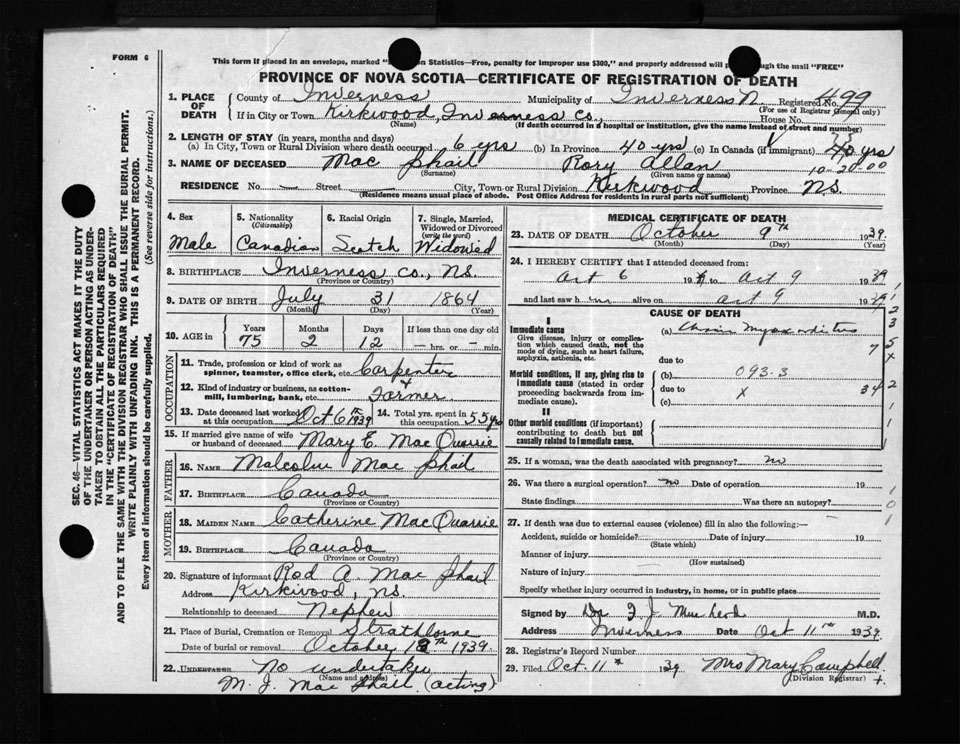 FORM 6
This form if placed in an envelope, marked " on Statistics—Free, penalty for improper use $300," and properly addressed will through the mail "FREE"
PROVINCE OF NOVA SCOTIA—CERTIFICATE OF REGISTRATION OF DEATH
1. PLACE OF DEATH County of Inverness Municipality of Inverness N. Registered No. 499
(For use of Registrar General only)
If in City or Town Kirkwood, Inverness co., House No.
(Name) (If death occurred in a hospital or institution, give the name instead of street and number)
2. LENGTH OF STAY (in years, months and days)
(a) In City, Town or Rural Division where death occurred 6 yrs (b) In Province 40 yrs (c) In Canada (if immigrant) 40 yrs
3. NAME OF DECEASED Mac Phail Rory Allan 10-20.00
(Surname) (Given name or names)
RESIDENCE No. — Street — City, Town or Rural Division Kirkwood Province N.S.
(Residence means usual place of abode. Post Office Address for residents in rural parts not sufficient)
SEC. 46—VITAL STATISTICS ACT MAKES IT THE DUTY
OF THE UNDERTAKER OR PERSON ACTING AS UNDER-
TAKER TO OBTAIN ALL THE PARTICULARS REQUIRED
IN THE "CERTIFICATE OF REGISTRATION OF DEATH"
AND TO FILE THE SAME WITH THE DIVISION REGISTRAR WHO SHALL ISSUE THE BURIAL PERMIT.
WRITE PLAINLY WITH UNFADING INK. THIS IS A PERMANENT RECORD.
Every item of information should be carefully supplied. (See reverse side for instructions.)
4. Sex 5. Nationality (Citizenship) 6. Racial Origin 7. Single, Married, Widowed or Divorced (write the word)
Male Canadian Scotch Widowed
8. BIRTHPLACE Inverness co., N.S.
(Province or Country)
9. DATE OF BIRTH July 31 1864
(Month) (Day) (Year)
10. AGE in Years Months Days If less than one day old
75 2 12 — hrs. or — min.
OCCUPATION
11. Trade, profession or kind of work as spinner, teamster, office clerk, etc. Carpenter
12. Kind of industry or business, as cotton-mill, lumbering, bank, etc. + Farmer
13. Date deceased last worked at this occupation Oct 6th 1939 14. Total yrs. spent in this occupation 55 yrs
15. If married give name of wife or husband of deceased Mary E. Mac Quarrie
FATHER
16. NAME Malcolm Mac Phail
17. BIRTHPLACE Canada
(Province or Country)
MOTHER
18. MAIDEN NAME Catherine MacQuarrie
19. BIRTHPLACE Canada
(Province or Country)
20. Signature of informant Rod A. Mac Phail
Address Kirkwood, N.S.
Relationship to deceased Nephew
21. Place of Burial, Cremation or Removal Strathlorne
Date of burial or removal October 12th 1939
22. UNDERTAKER No undertaker
(Name and address)
M. J. Mac Phail (acting)
MEDICAL CERTIFICATE OF DEATH
23. DATE OF DEATH October 9th 1939.
(Month) (Day) (Year)
24. I HEREBY CERTIFY that I attended deceased from:
Oct 6 19 to Oct 9 1939
and last saw h im alive on Oct 9 1939
CAUSE OF DEATH
I
Immediate cause (a) Chronic Myocarditis
Give disease, injury or complication which caused death, not the mode of dying, such as heart failure, asphyxia, asthenia, etc.
due to
Morbid conditions, if any, giving rise to immediate cause (stated in order proceeding backwards from immediate cause).
(b) 093-3
due to X 34
(c)
II
Other morbid conditions (if important) contributing to death but not causally related to immediate cause.
25. If a woman, was the death associated with pregnancy? no
26. Was there a surgical operation? no Date of operation 19
State findings Was there an autopsy?
27. If death was due to external causes (violence) fill in also the following:—
Accident, suicide or homicide? Date of injury 19
(State which)
Manner of injury
(How sustained)
Nature of injury
Specify whether injury occurred in industry, in home, or in public place
Signed by Dr M.D.
Address Inverness Date Oct 11th 1939.
28. Registrar's Record Number
29. Filed Oct. 11th 1939 Mrs Mary Campbell
(Division Registrar)